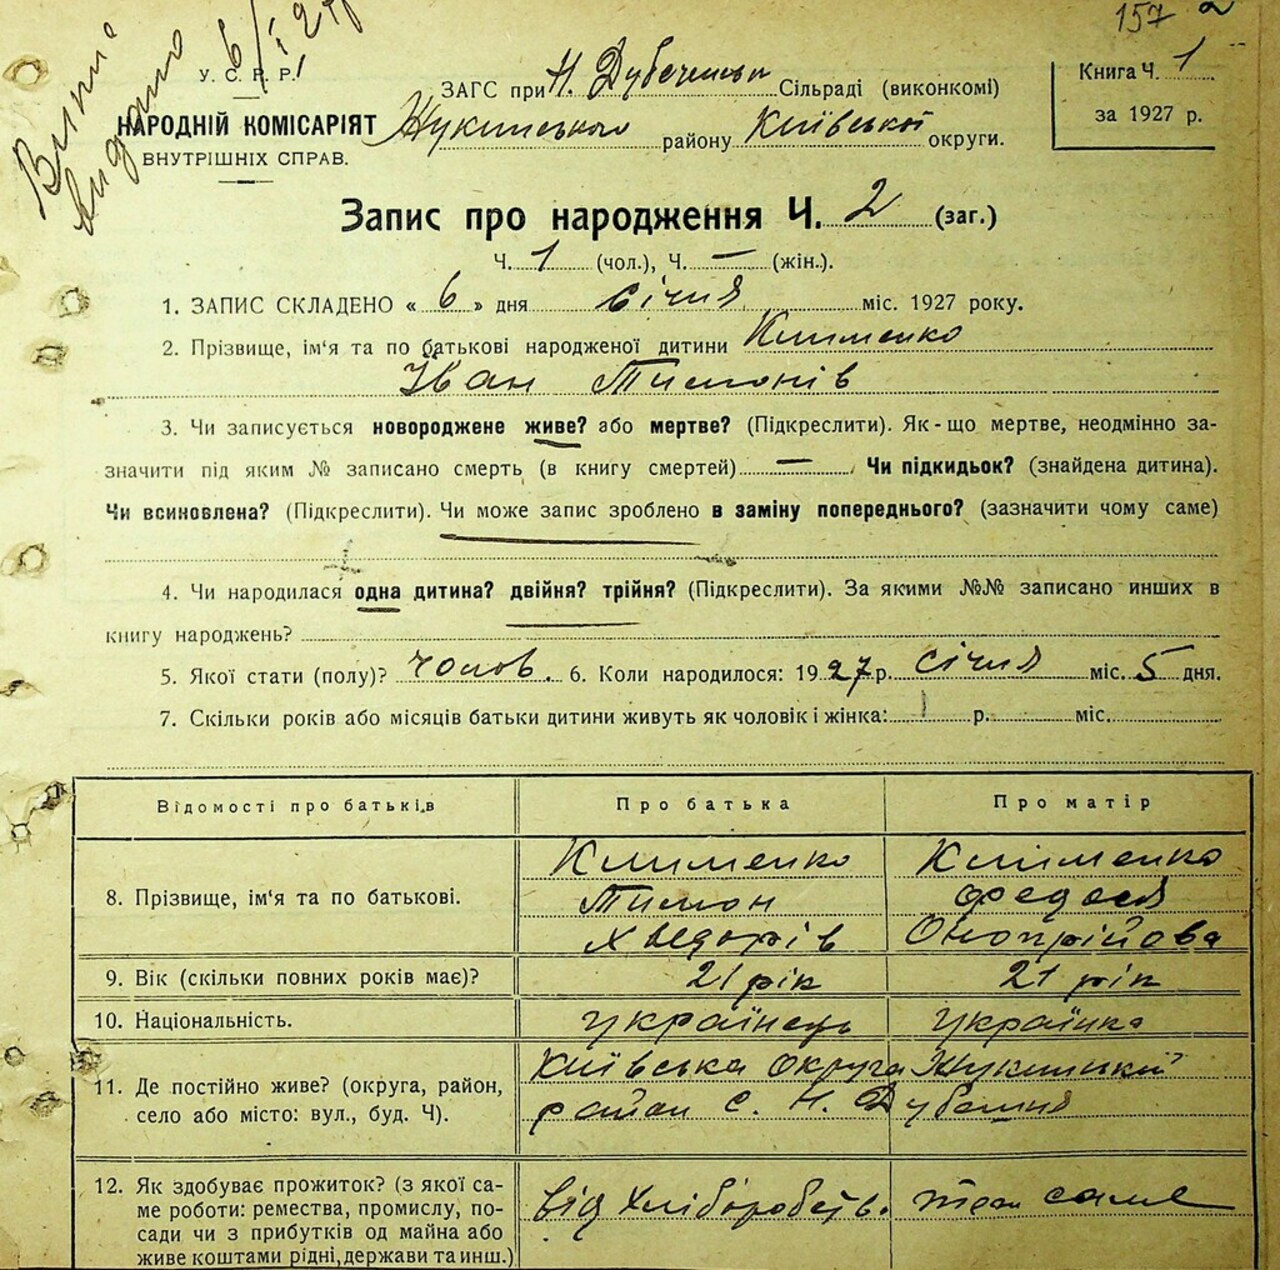 157 2
Витяг
видано
6/I 27 р.
У. С. Р. Р.
НАРОДНІЙ КОМІСАРІЯТ
ВНУТРІШНІХ СПРАВ.
ЗАГС при Н. Дубечанськ Сільраді (виконкомі)
Жукинського району Київської округи.
Книга Ч. 1
за 1927 р.
Запис про народження Ч. 2 (заг.)
Ч. 1 (чол.), Ч. — (жін.).
1. ЗАПИС СКЛАДЕНО « 6 » дня січня міс. 1927 року.
2. Прізвище, ім'я та по батькові народженої дитини Клименко
Іван Тимонів
3. Чи записується новороджене живе? або мертве? (Підкреслити). Як-що мертве, неодмінно за-
значити під яким № записано смерть (в книгу смертей) — Чи підкидьок? (знайдена дитина).
Чи всиновлена? (Підкреслити). Чи може запис зроблено в заміну попереднього? (зазначити чому саме)
4. Чи народилася одна дитина? двійня? трійня? (Підкреслити). За якими №№ записано инших в
книгу народжень?
5. Якої стати (полу)? чолов. 6. Коли народилося: 1927 р. січня міс. 5 дня.
7. Скільки років або місяців батьки дитини живуть як чоловік і жінка: 1 р. міс.
Відомості про батьків Про батька Про матір
8. Прізвище, ім'я та по батькові. Клименко Тимон Хведорів Клименко Федося Онопрійова
9. Вік (скільки повних років має)? 21 рік 21 рік
10. Національність. українець українка
11. Де постійно живе? (округа, район,
село або місто: вул., буд. Ч).
Київська округа Жукинський
район с. Н. Дубечня
12. Як здобуває прожиток? (з якої са-
ме роботи: ремества, промислу, по-
сади чи з прибутків од майна або
живе коштами рідні, держави та инш.)
від хліборобств. теж саме